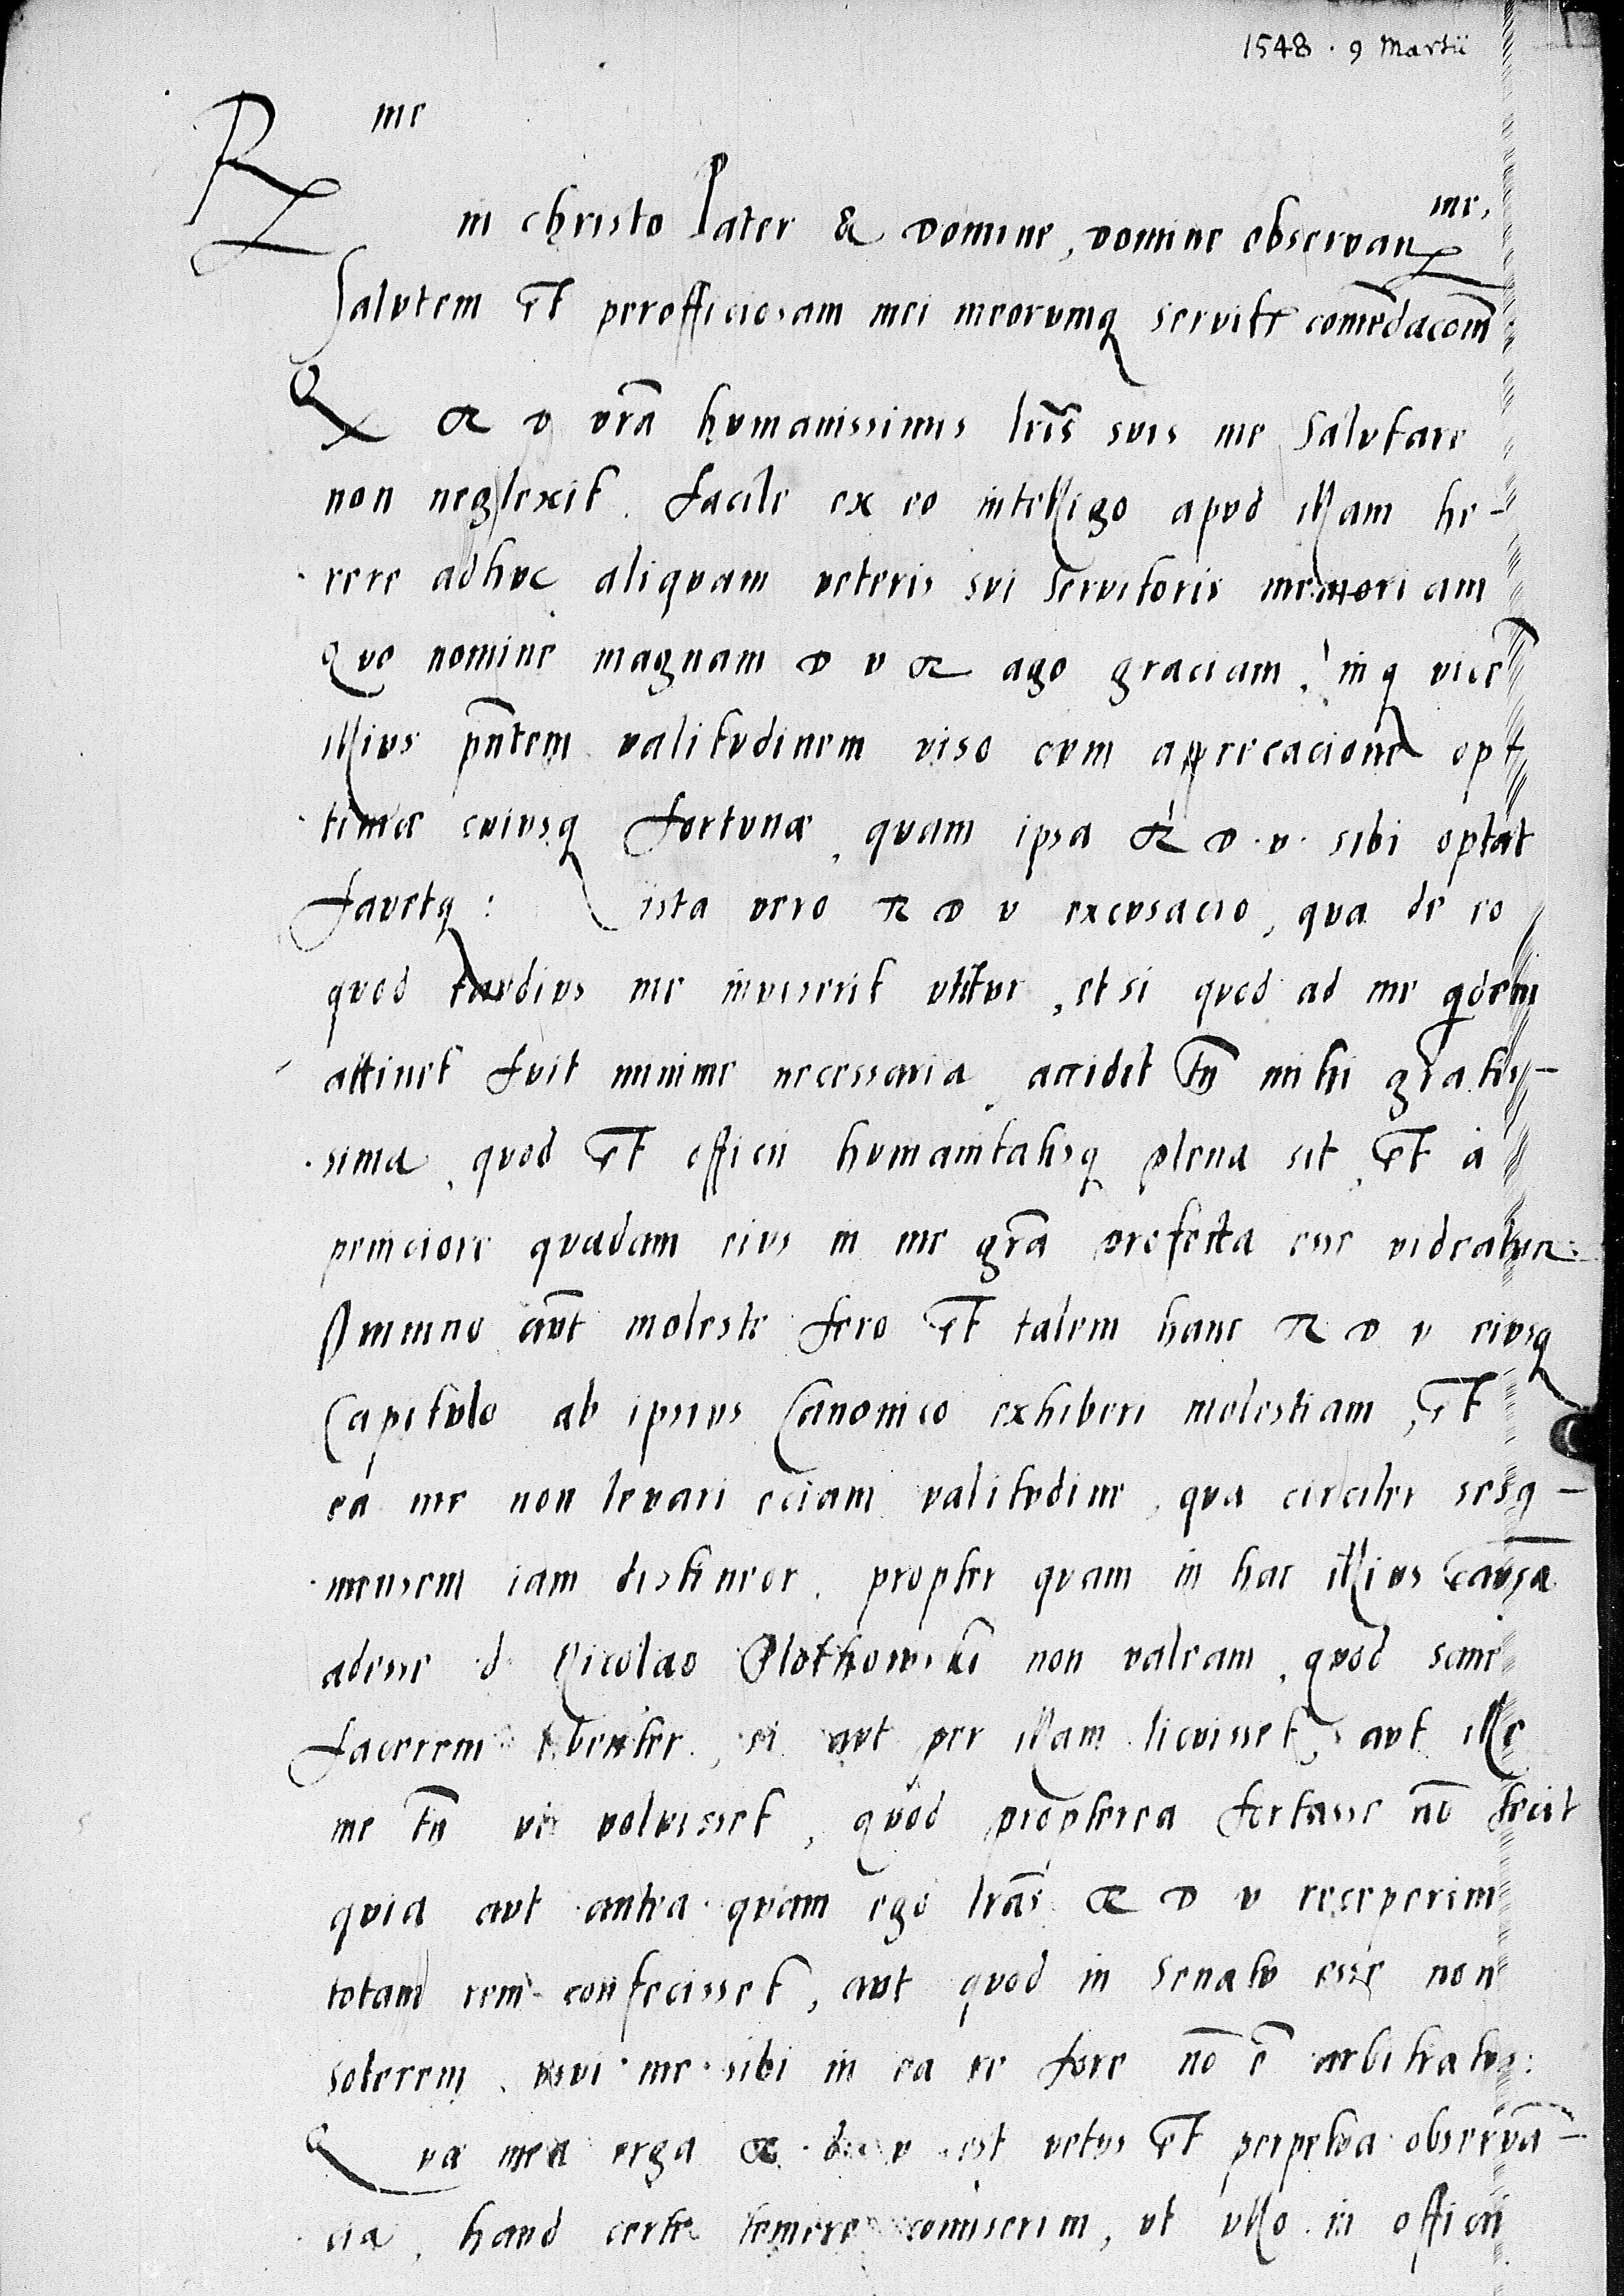 1548 . 9 Martii
R me
in christo Pater & domine, domine observan me,
Salutem et perofficiosam mei meorumq servitr comēdacōm
Q R D vrā humanissimis lris suis me salutare
non neglexit. facile ex eo intelligo apud illam he-
rere adhuc aliquam veteris sui servitoris memoriam
quo nomine magnam D V R ago graciam, inq vicē
illius pntem valitudinem viso cum apprecacione opt
timæ cuiusq fortunæ, quam ipsa R D. V. sibi optat
favetq: ista vero R D V excusacio, qua de eo
quod tardius me inviserit utitur, etsi quod ad me qdem
attinet fuit minime necessaria, accidit tn mihi gratis-
sima, quod et officii humanitatisq plena sit, et à
penciore quadam eius in me grā profecta esse videatur:
Immo aut moleste fero et talem hanc R D V eiusq
Capitulo ab ipsius Canonico exhiberi molestiam, et
ea me non levari eciam valitudine, qua circiter sesq-
mensem iam distineor, propter quam in hac illius causa
adesse d Nicolao Plothowski non valeam, quod sane
facerem libenter, si aut per illam licuisset, aut ille
me tn uti voluisset, quod propterea fortasse nō fecit
quia aut antea quam ego lrās R D V receperim
totam rem confecisset, aut quod in Senatu esse non
solerem, usui me sibi in ea re fore nō ē arbitratus:
Quæ mea erga R d V est vetus et perpetua observā-
cia, haud certe temere comiserim, ut ullo in officii